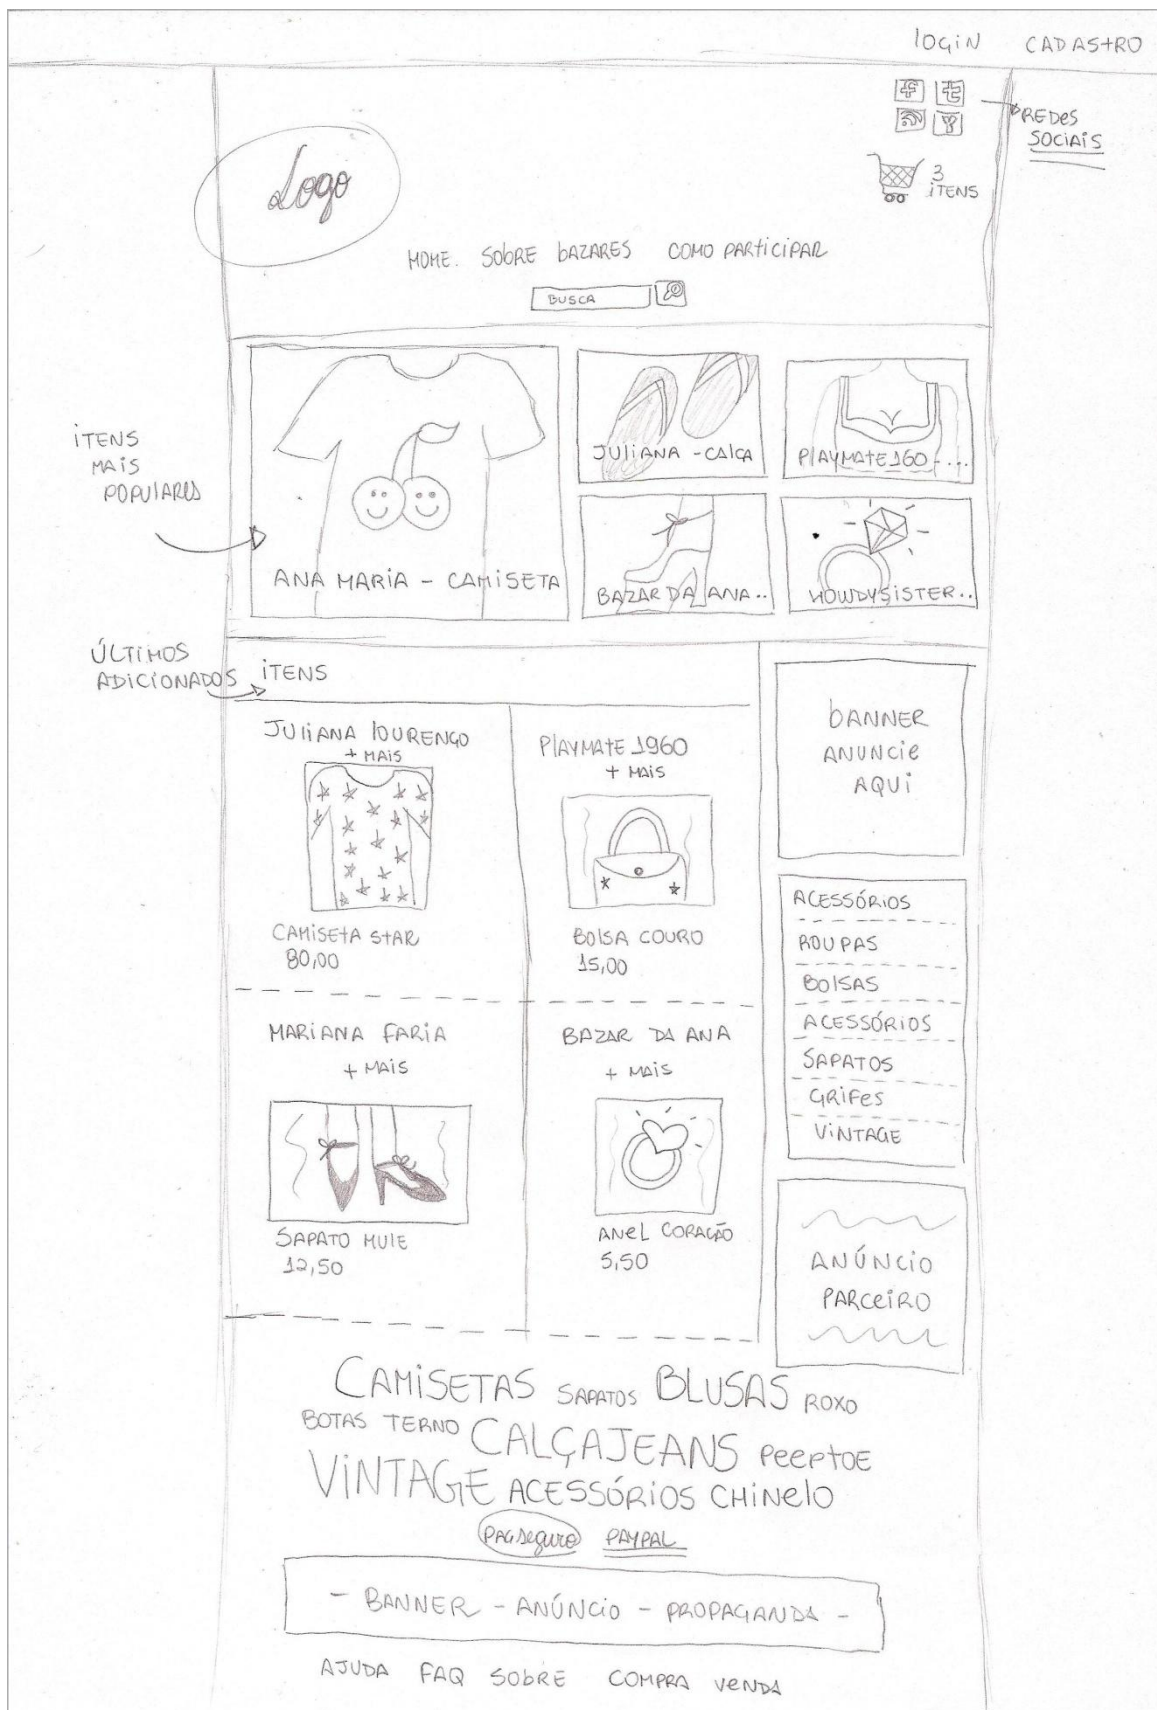 login CADAStRO
REDES
SOCIAIS
3
iTENS
Logo
HOME. SobRE bAZARES COMO PARTICIPAR
BUSCA
iTENS
MAIS
POPULARES
ANA MARIA - CAMISETA
JULIANA - CALÇA
PLAYMATE 160 - ...
BAZAR DA ANA..
HOWDYSISTER..
ÚLTIMOS
ADICIONADOS
iTENS
JULIANA LOURENÇO
+ MAIS
CAMISETA STAR
80,00
PLAYMATE 1960
+ MAIS
BOLSA COURO
15,00
MARIANA FARIA
+ MAIS
SAPATO MULE
12,50
BAZAR DA ANA
+ MAIS
ANEL CORAÇÃO
5,50
bANNER
ANUNCIE
AQUI
ACESSÓRIOS
ROUPAS
BOLSAS
ACESSÓRIOS
SAPATOS
GRIFES
VINTAGE
ANÚNCIO
PARCEIRO
CAMISETAS SAPATOS BLUSAS ROXO
BOTAS TERNO CALÇAJEANS PEEPTOE
VINTAGE ACESSÓRIOS CHINELO
PagSeguro PAYPAL
- BANNER - ANÚNCIO - PROPAGANDA -
AJUDA FAQ SOBRE COMPRA VENDA